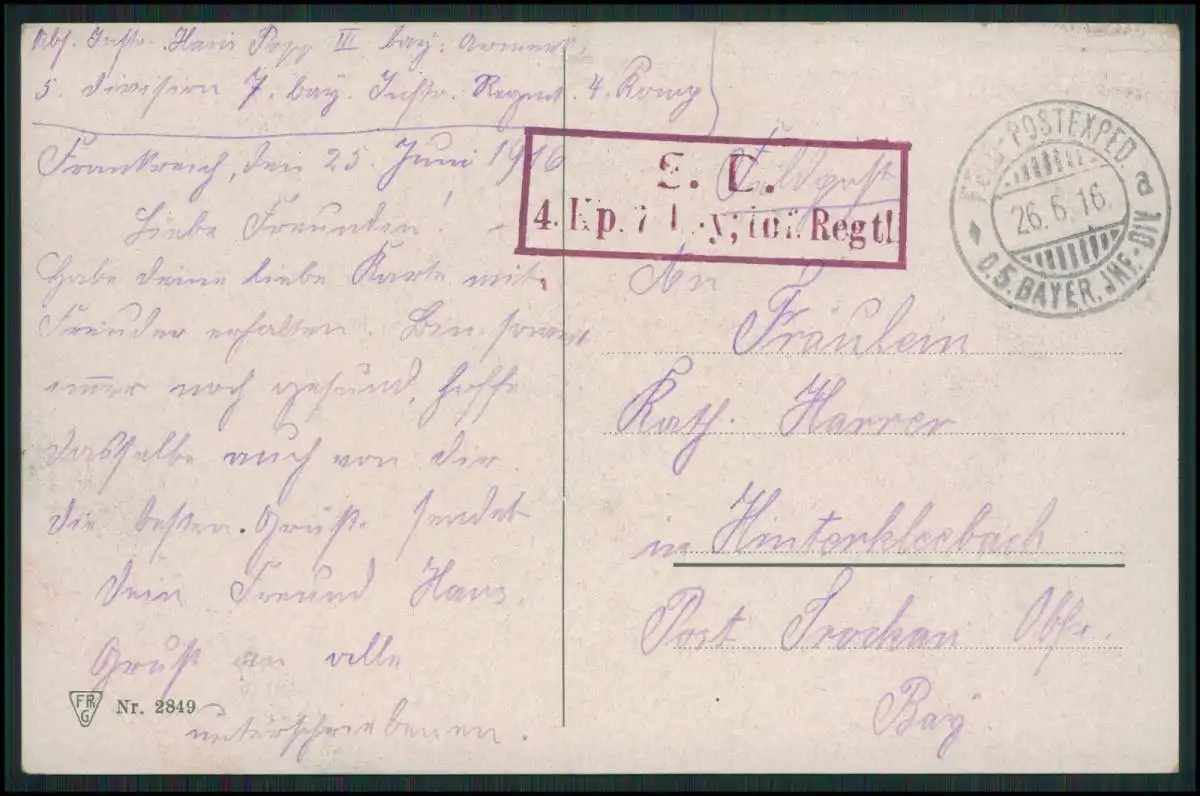 Abs. Inftr. Hans Popp III bay. Armeek.
5. Division 7. bay. Inftr. Regmt. 4. Komp
Frankreich, den 25. Juni 1916
Liebe Freundin!
Habe deine liebe Karte mit
Freuden erhalten. Bin soweit
immer noch gesund, hoffe
dasselbe auch von dir.
Die besten Grüße sendet
Dein Freund Hans.
Gruß an alle
unterschriebenen.
FRG
Nr. 2849
S. B.
4. Kp. 7. bay. Inf. Regt!
Feldpost
FELD-POSTEXPED. a
26.6.16.
D. 5. BAYER. INF.-DIV.
An
Fräulein
Kath. Harrer
in Hinterkleebach
Post Trockau Obfr.
Bay.